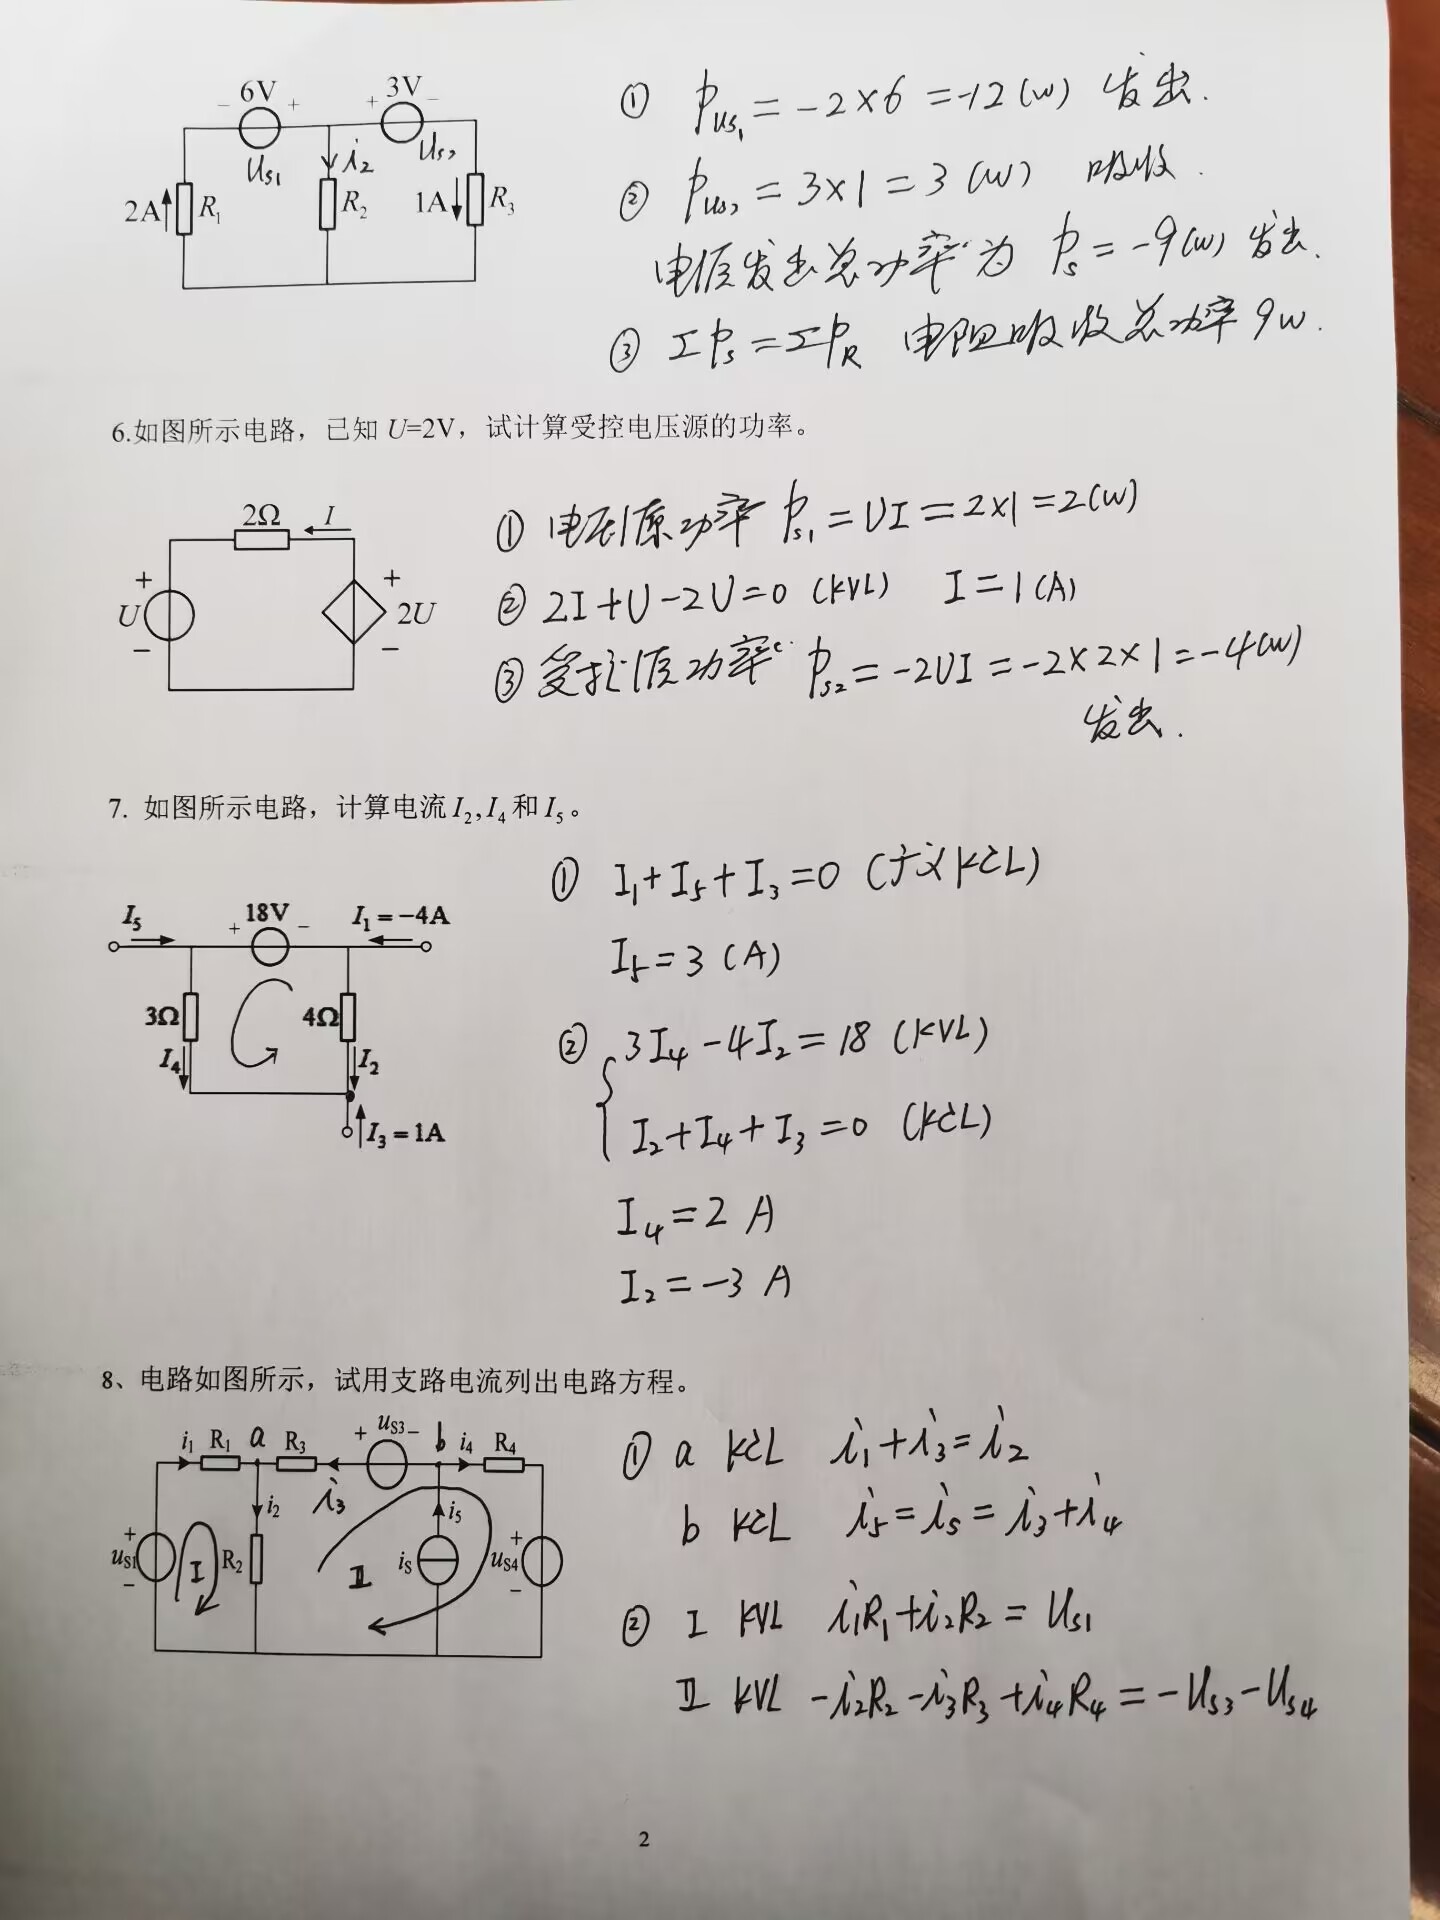 6V
3V
- + + -
Us1 i2 Us2
2A R1 R2 1A R3
① Pus1 = -2×6 = -12(W) 发出.
② Pus2 = 3×1 = 3(W) 吸收.
电源发出总功率为 Ps = -9(W) 发出.
③ ΣPs = ΣPR 电阻吸收总功率9W.
6.如图所示电路，已知 U=2V，试计算受控电压源的功率。
2Ω I
+ +
U 2U
- -
① 电压源功率 Ps1 = UI = 2×1 = 2(W)
② 2I+U-2U=0 (KVL) I=1(A)
③ 受控源功率 Ps2 = -2UI = -2×2×1 = -4(W)
发出.
7. 如图所示电路，计算电流 I2,I4 和 I5。
I5 18V I1=-4A
+ -
3Ω 4Ω
I4 I2
I3=1A
① I1+I5+I3=0 (广义KCL)
I5=3 (A)
② 3I4-4I2=18 (KVL)
I2+I4+I3=0 (KCL)
I4=2 A
I2=-3 A
8、电路如图所示，试用支路电流列出电路方程。
i1 R1 a R3 + uS3 - b i4 R4
i2 i3 i5
+ +
uS1 I R2 II iS uS4
- -
① a KCL i1+i3=i2
b KCL i5=is=i3+i4
② I KVL i1R1+i2R2=Us1
II KVL -i2R2-i3R3+i4R4=-Us3-Us4
2